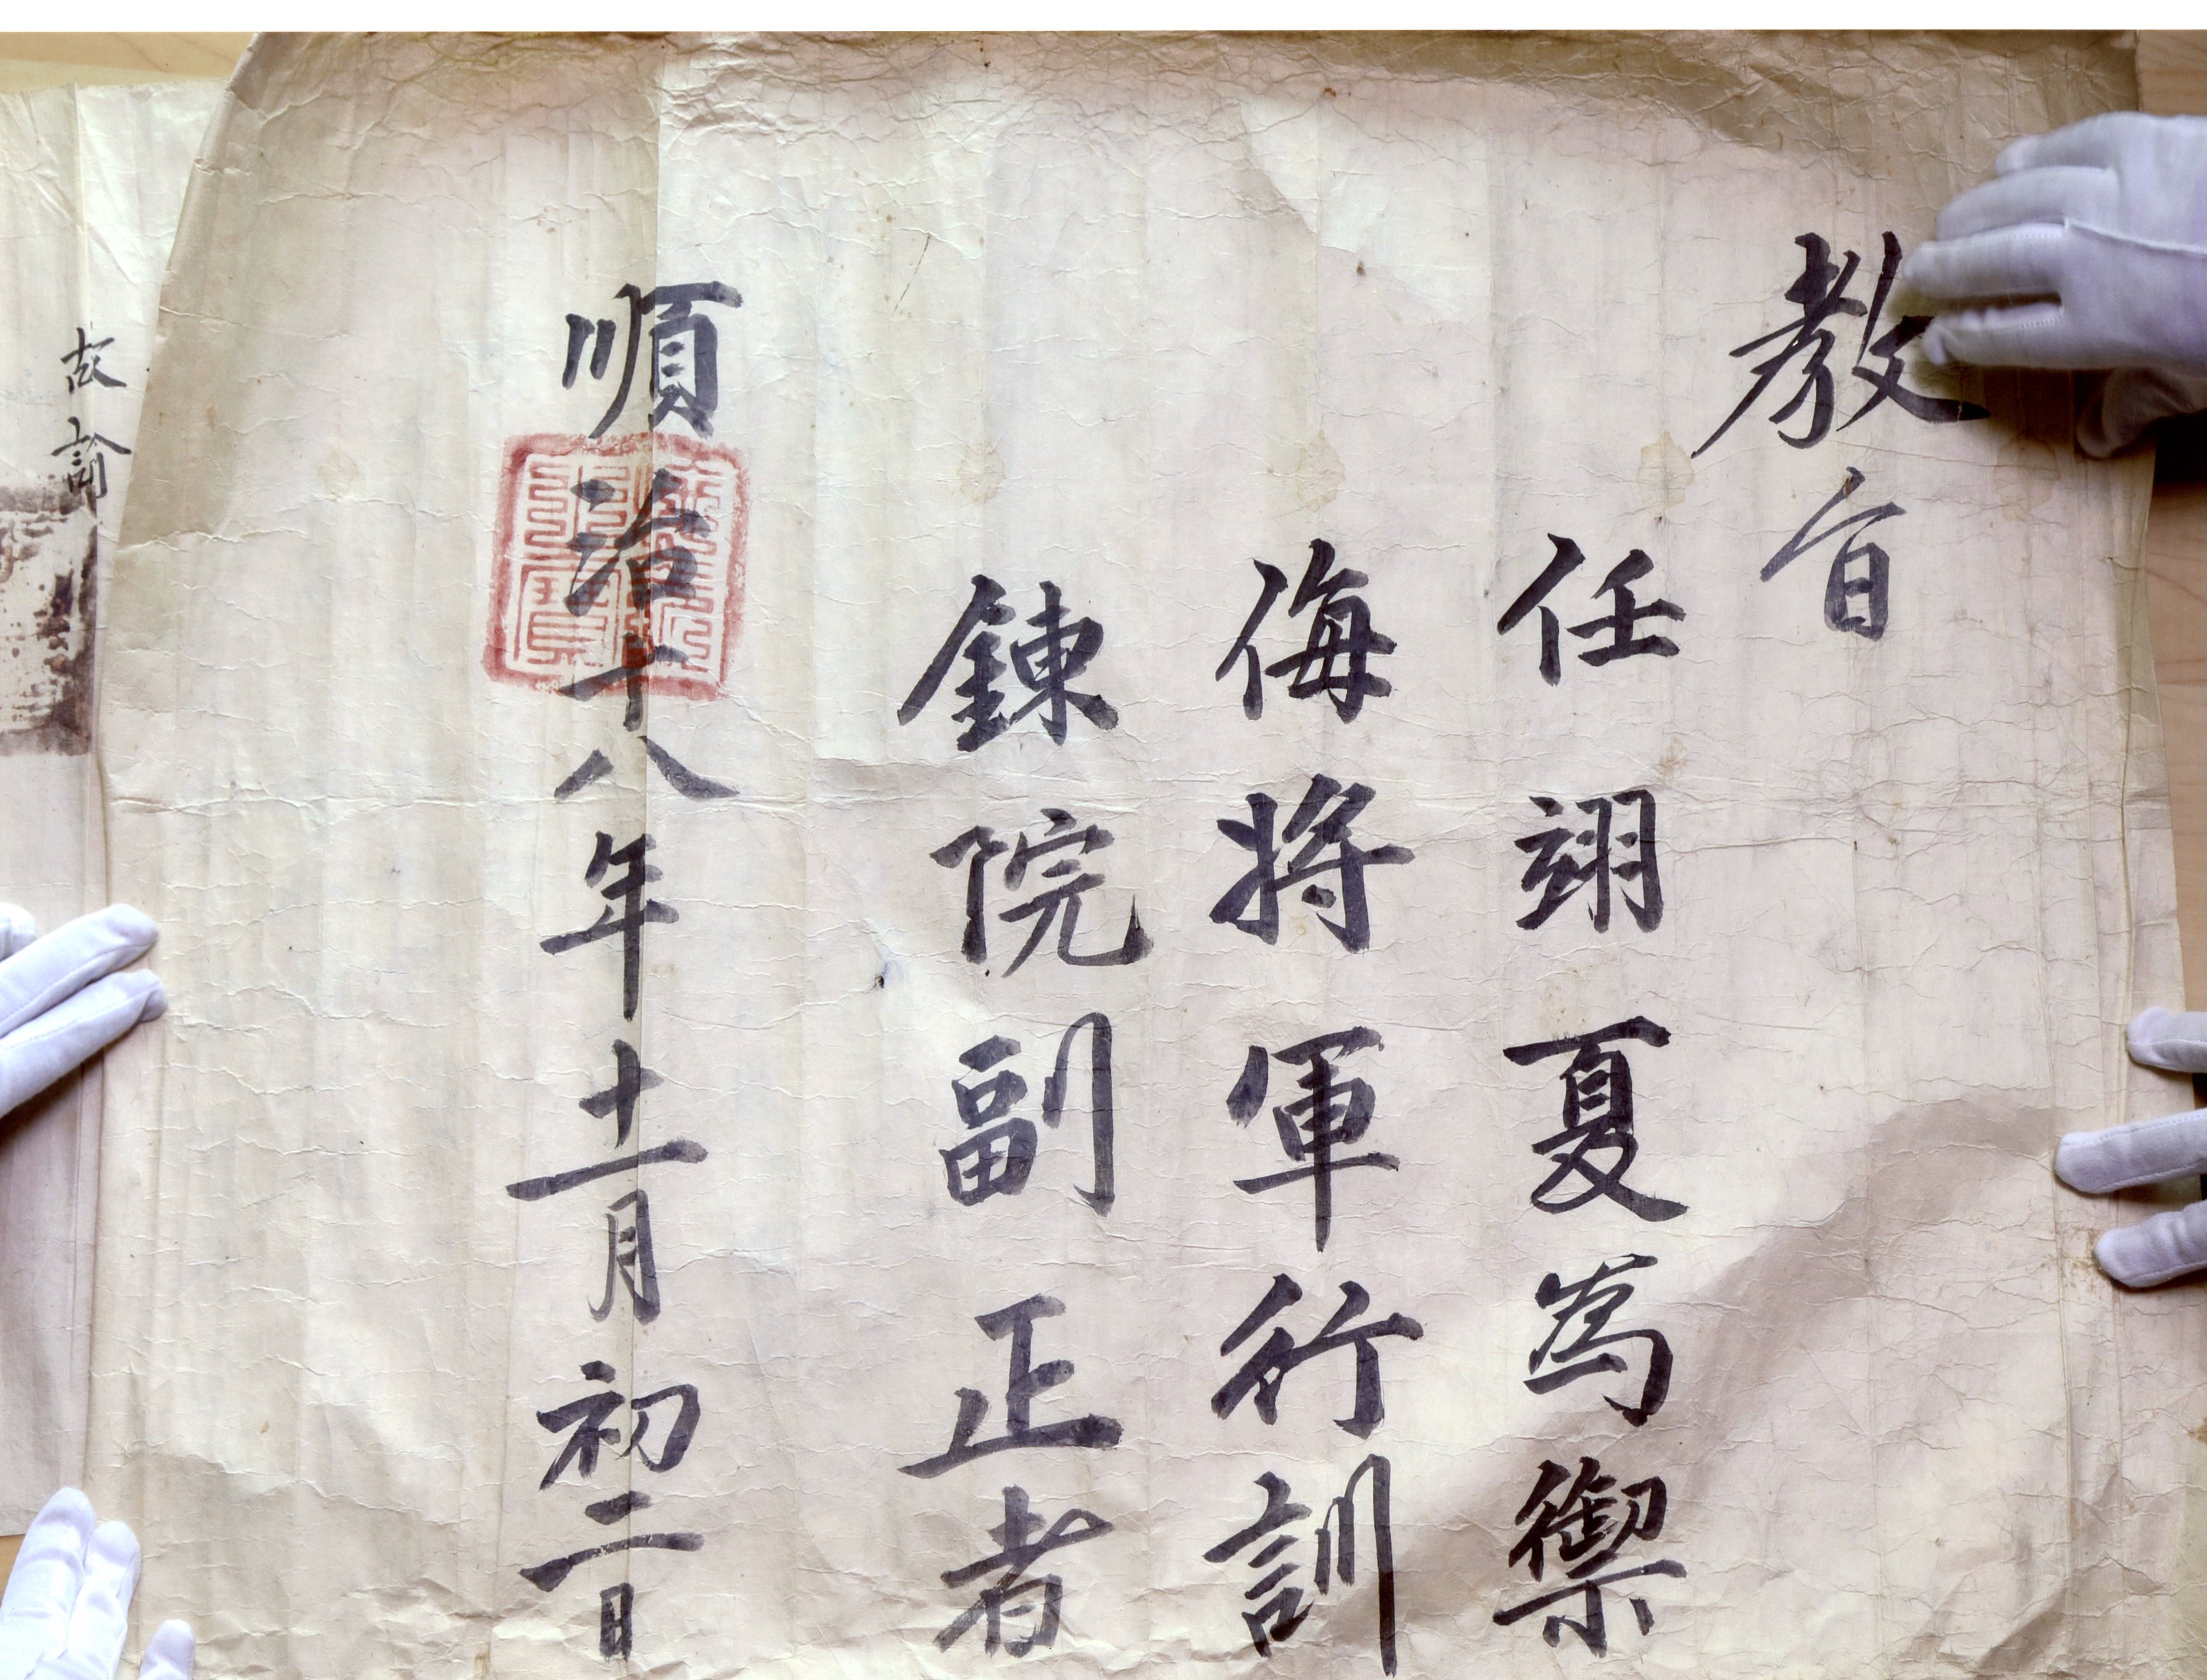 教旨
任翊夏為禦
侮將軍行訓
鍊院副正者
順治十八年十一月初二日
故諭